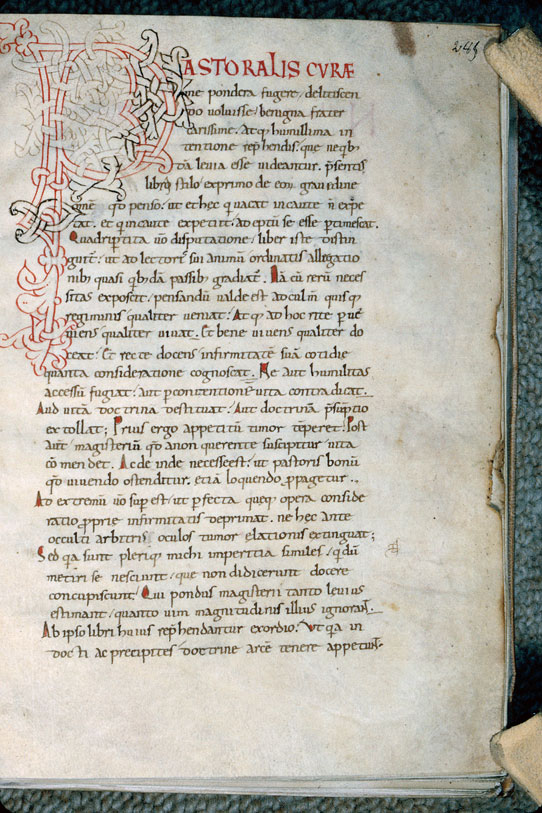 245
PASTORALIS CURÆ
me pondera fugere. delitiscen
do voluisse / benigna frater
carissime. Atq; humillima in
tentione rep̄hendis. que ne qb;
dā levia esse videantur. p̄sentis
libri stilo exprimo de eorū gravedine
omne qd penso. ut et hec qui vacat incaute n̄ expe
tat. et qui incaute expetiit / adeptū se esse p̄timescat.
Quadripertita v̄o disputatione / liber iste distin
guitr̄. ut ad lectoris sui animum ordinatis allegatio
nib; quasi qb;dā passib; gradiatr̄. Nā cū rerū neces
sitas exposcit / pensandū valde est ad culm̄ quisq;
regiminis qualiter veniat. Atq; ad hoc rite p̄ve
niens qualiter vivat. Et bene vivens qualiter do
ceat. Et recte docens infirmitatē suā cotidie
quanta consideratione cognoscat. Ne aut humilitas
accessū fugiat. aut pvontionē vita contradicat.
Aut vitā doctrina destituat. Aut doctrinā p̄sūptio
extollat; Prius ergo appetitū timor tēperet. Post
aut̄ magisteriū qd̄ a non querente suscipitur / vita
cōmendet. Ac deinde necesse est. ut pastoris bonū
qd̄ vivendo ostenditur. etiā loquendo propagetur.
Ad extremū v̄o sup̄ est / ut p̄fecta queq; opera conside
ratio proprie infirmitatis deprimat. ne hec ante
occulti arbitris oculos tumor elationis extinguat;
Sed qa sunt plerique michi impertia similes / q̄ dū
metiri se nesciunt / que non didicerunt docere
concupiscunt / Qui pondus magisterii tanto levius
estimant / quanto vim magnitudinis illius ignorant.
Ab ipso libri huius rep̄hendantur exordio. Ut qa in
docti ac precipites doctrine arcē tenere appetunt.